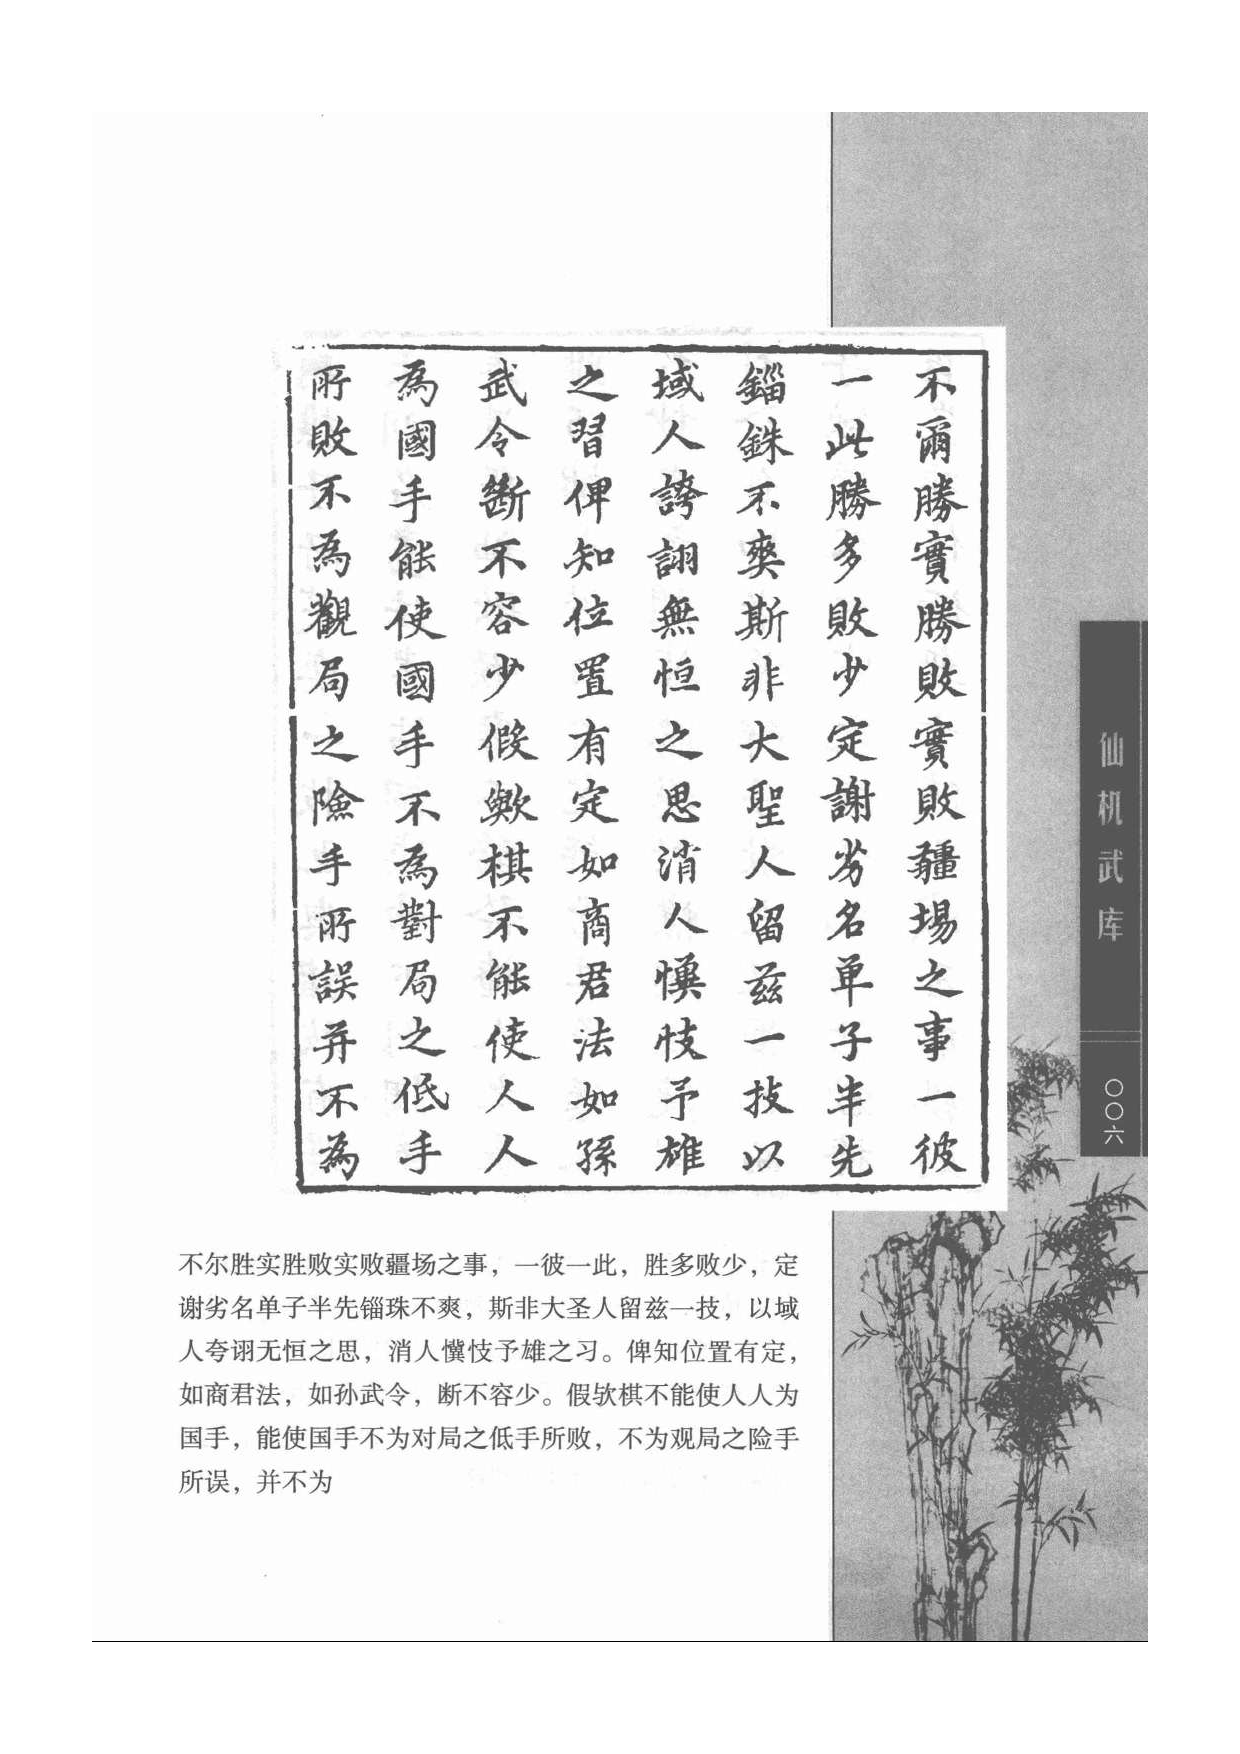 不爾勝實勝敗實敗疆場之事一彼
一此勝多敗少定謝劣名单子半先
錙銖不爽斯非大聖人留兹一技以
域人誇詡無恒之思消人懻忮予雄
之習俾知位置有定如商君法如孫
武令斷不容少假歟棋不能使人人
為國手能使國手不為對局之低手
所敗不為觀局之險手所誤并不為
不尔胜实胜败实败疆场之事，一彼一此，胜多败少，定
谢劣名单子半先锱珠不爽，斯非大圣人留兹一技，以域
人夸诩无恒之思，消人懻忮予雄之习。俾知位置有定，
如商君法，如孙武令，断不容少。假欤棋不能使人人为
国手，能使国手不为对局之低手所败，不为观局之险手
所误，并不为
仙机武库
〇〇六